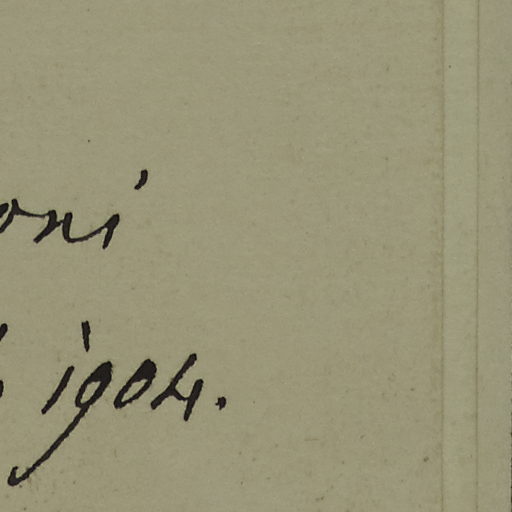 oni
1904.